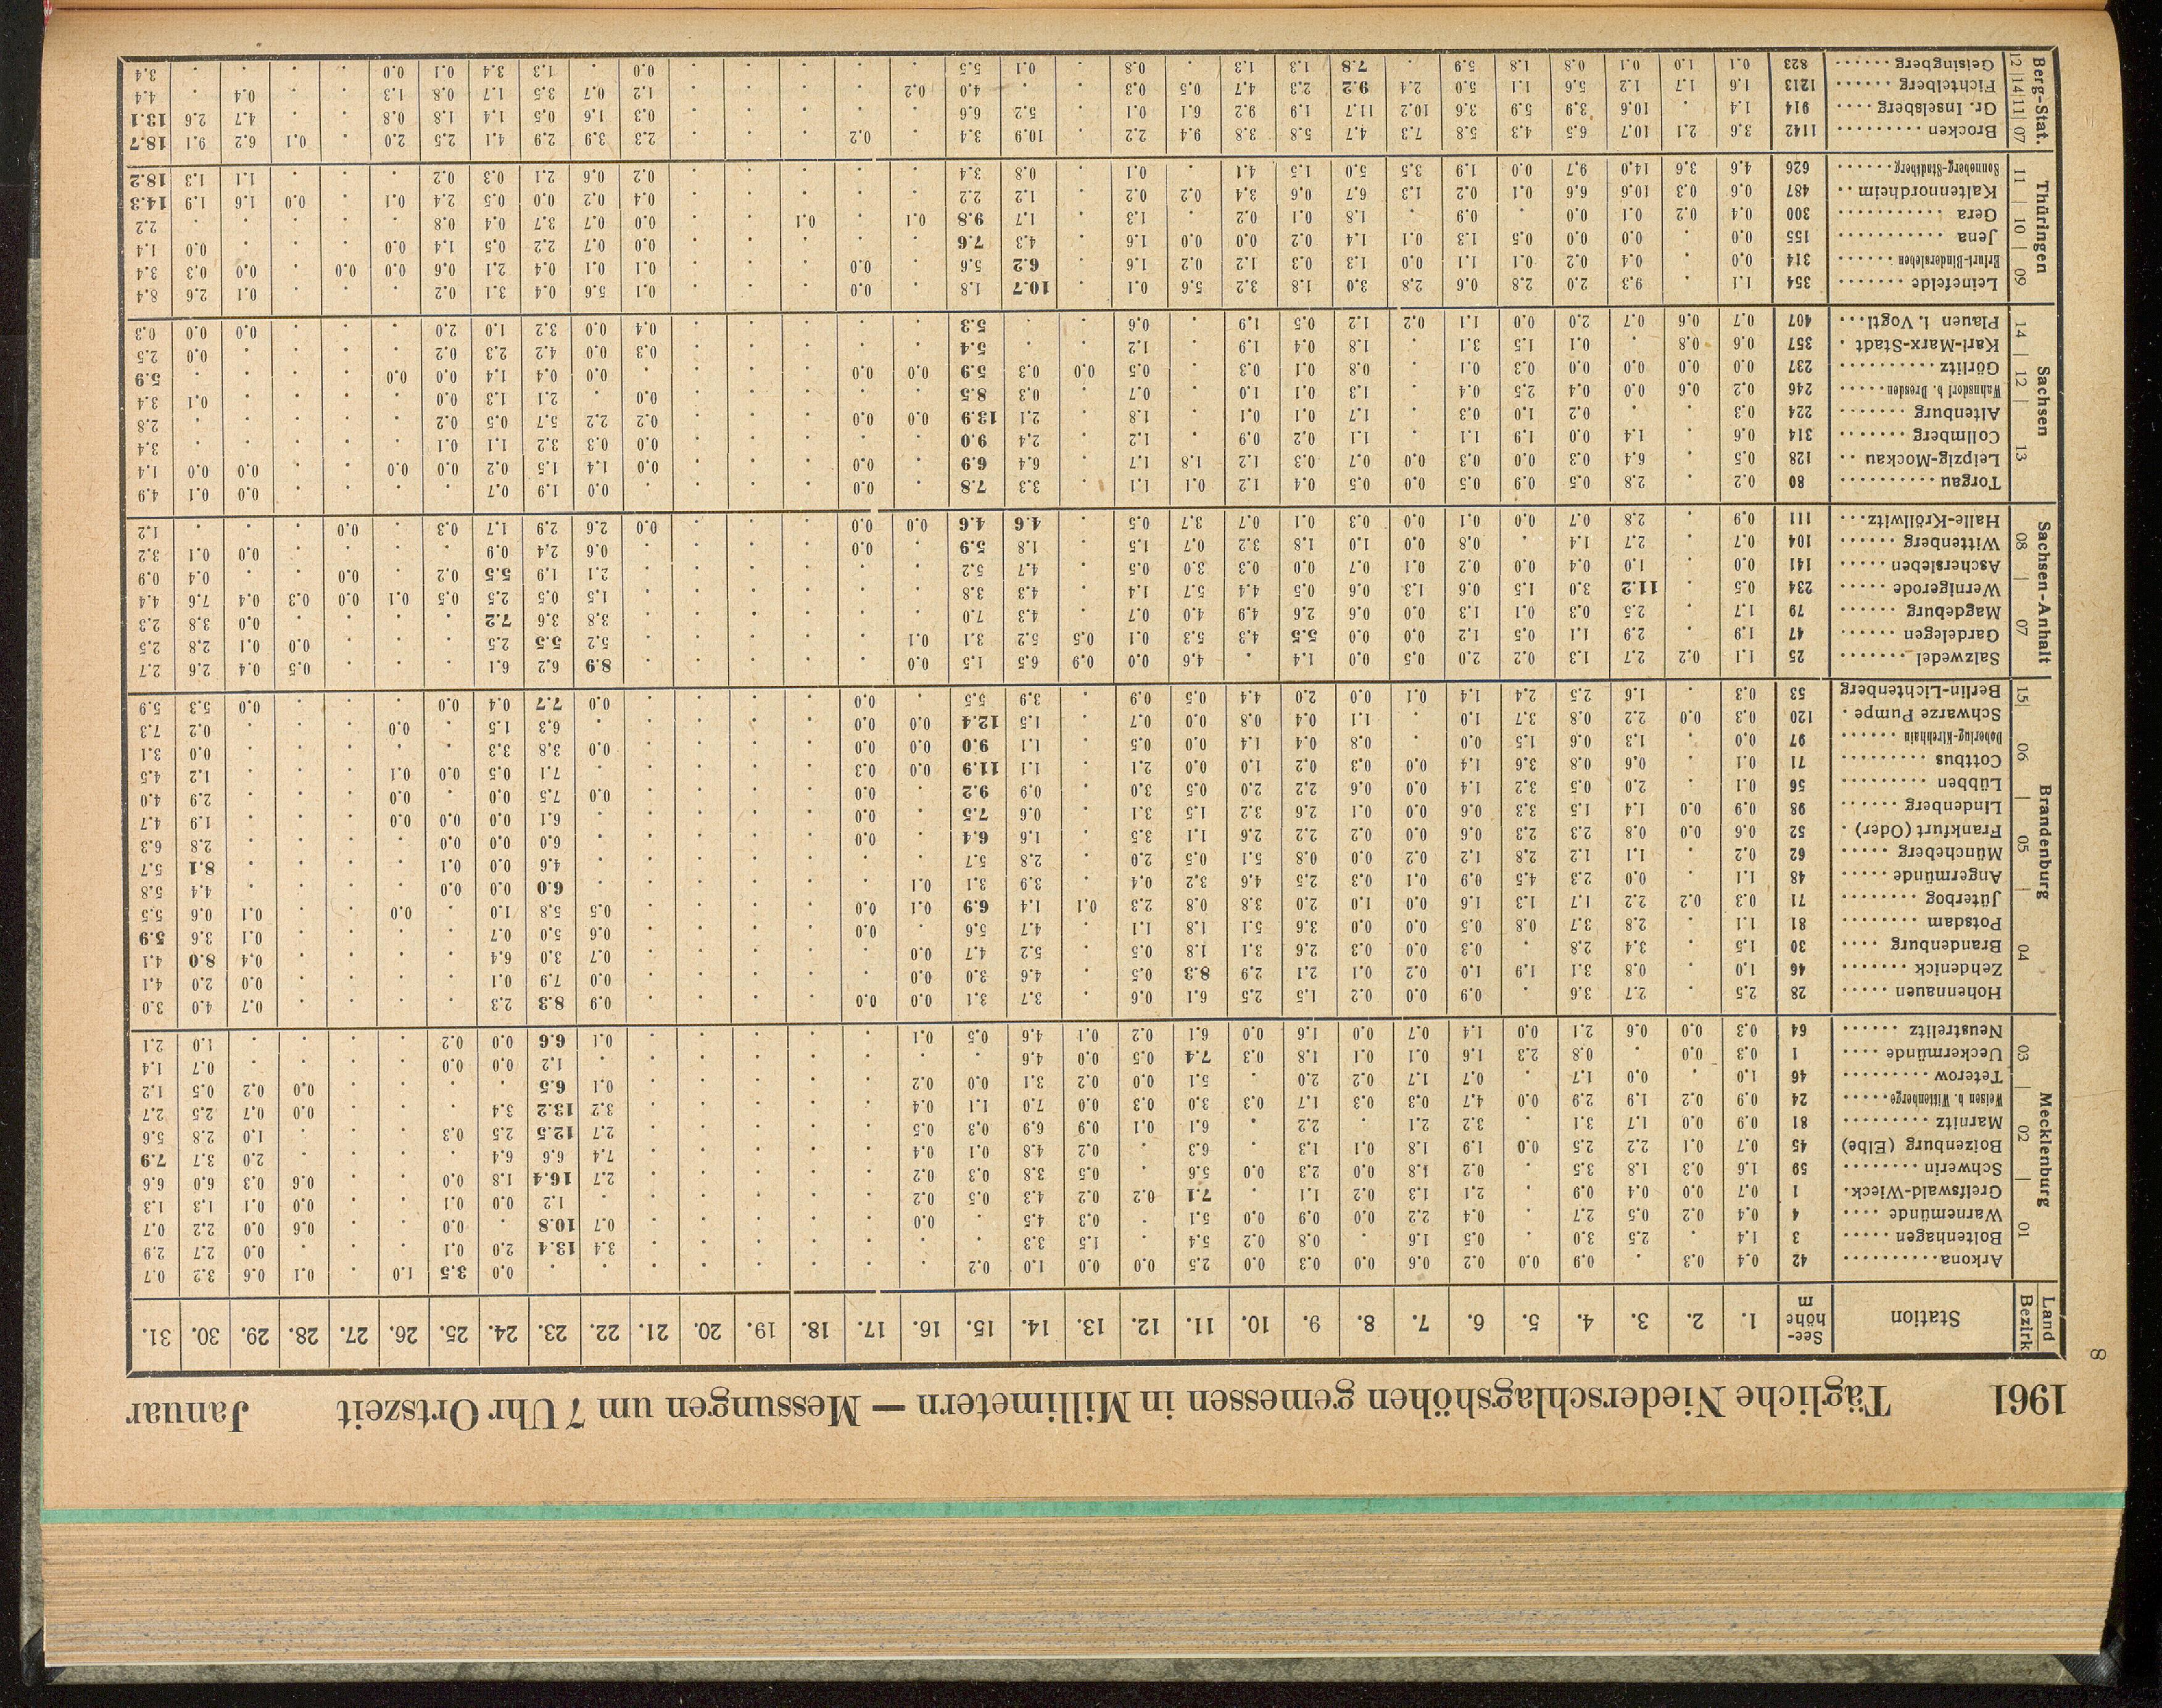 8
1961 Tägliche Niederschlagshöhen gemessen in Millimetern — Messungen um 7 Uhr Ortszeit Januar
Land Bezirk Station See-höhe m 1. 2. 3. 4. 5. 6. 7. 8. 9. 10. 11. 12. 13. 14. 15. 16. 17. 18. 19. 20. 21. 22. 23. 24. 25. 26. 27. 28. 29. 30. 31.
Mecklenburg
01 02 03
Arkona 42 0.4 0.3 . 0.9 0.0 0.2 0.6 0.0 0.3 0.0 2.5 0.0 0.0 1.0 0.2 . . . . . . . . 0.0 3.5 1.0 . 0.1 0.6 3.2 0.7
Boltenhagen 3 1.4 . 2.5 3.0 . 0.5 1.6 . 0.8 0.2 5.4 . 1.5 3.3 . . . . . . . 3.4 13.4 2.0 0.1 . . . 0.0 2.7 2.9
Warnemünde 4 0.4 0.2 0.5 2.7 . 0.4 2.2 0.0 0.9 0.0 5.1 . 0.3 4.5 . 0.0 . . . . . 0.7 10.8 . 0.0 . . 0.6 0.0 2.2 0.7
Greifswald-Wieck. 1 0.7 0.0 0.4 0.9 . 2.1 1.3 0.2 1.1 . 7.1 0.2 0.2 4.3 0.5 0.2 . . . . . . 1.2 0.0 0.1 . . 0.0 0.1 1.3 1.3
Schwerin 59 1.6 0.3 1.8 3.5 . 0.2 4.8 0.0 2.3 0.0 5.6 . 0.5 3.8 0.3 0.2 . . . . . 2.7 16.4 1.8 0.0 . . 0.6 0.3 6.0 6.6
Boizenburg (Elbe) 45 0.7 0.1 2.2 2.5 0.0 1.9 1.8 0.1 1.3 . 6.3 . 0.2 4.8 0.1 0.4 . . . . . 7.4 6.6 6.4 . . . . 2.0 3.7 7.9
Marnitz 81 0.9 0.0 1.7 3.1 . 3.2 2.1 . 2.2 . 6.1 0.1 0.9 6.9 0.3 0.5 . . . . . 2.7 12.5 2.5 0.3 . . . 1.0 2.8 5.6
Weisen b. Wittenberge 24 0.9 0.2 1.9 2.9 0.0 4.7 0.3 0.3 1.7 0.3 3.0 0.3 0.0 7.0 1.1 0.4 . . . . . 3.2 13.2 3.4 . . . 0.0 0.7 2.5 2.7
Teterow 46 1.0 . 0.0 1.7 . 0.7 1.7 0.2 2.0 . 5.1 0.0 0.2 3.1 0.0 0.2 . . . . . 0.1 6.5 . . . . 0.0 0.2 0.5 1.2
Ueckermünde 1 0.3 0.0 . 0.8 2.3 1.6 0.1 0.1 1.8 0.3 7.4 0.5 0.0 4.6 . . . . . . . . 1.2 0.0 0.0 . . . . 0.7 1.4
Neustrelitz 64 0.3 0.0 0.6 2.1 0.0 1.4 0.7 0.0 1.6 0.0 6.1 0.2 0.1 4.6 0.5 0.1 . . . . . 0.1 6.6 0.0 0.2 . . . . 1.0 2.1
Brandenburg
04 05 06 15
Hohennauen 28 2.5 . 2.7 3.6 . 0.9 0.0 0.2 1.5 2.5 6.1 0.6 . 3.7 3.1 0.0 0.0 . . . . 0.9 8.3 2.3 . . . . 0.7 4.0 3.0
Zehdenick 46 1.0 . 0.8 3.1 1.9 1.0 0.2 0.1 2.1 2.9 8.3 0.5 . 4.6 3.0 0.0 . . . . . 0.0 7.9 0.1 . . . . 0.0 2.0 4.1
Brandenburg 30 1.5 . 3.4 2.8 . 0.3 0.0 0.3 2.6 3.1 1.8 0.5 . 5.2 4.7 0.0 . . . . . 0.7 3.0 6.4 . . . . 0.4 8.0 4.1
Potsdam 81 1.1 . 2.8 3.7 0.8 0.5 0.0 0.0 3.6 5.1 1.8 1.1 . 4.7 5.6 . 0.0 . . . . 0.6 5.0 0.7 . . . . 0.1 3.6 5.9
Jüterbog 71 0.3 0.2 2.2 1.7 1.3 1.6 0.0 1.0 2.0 3.8 0.8 2.3 0.1 1.4 6.9 0.1 0.0 . . . . 0.5 5.8 1.0 . 0.0 . . 0.1 0.6 5.5
Angermünde 48 1.1 . 0.0 2.3 4.5 0.9 0.1 0.3 2.5 4.6 3.2 0.4 . 3.9 3.1 0.1 . . . . . . 6.0 0.0 0.0 . . . . 4.4 5.8
Müncheberg 62 0.2 . 1.1 1.2 2.8 1.2 0.2 0.0 0.8 5.1 0.5 2.0 . 2.8 5.7 . . . . . . . 4.6 0.0 0.1 . . . . 8.1 5.7
Frankfurt (Oder) 52 0.6 0.0 0.8 2.3 2.3 0.6 0.0 0.2 2.2 2.6 1.1 3.5 . 1.6 6.4 . 0.0 . . . . . 6.0 0.0 0.0 . . . . 2.8 6.3
Lindenberg 98 0.9 0.0 1.4 1.5 3.3 0.6 0.0 0.1 2.6 3.2 1.5 3.1 . 0.6 7.5 . 0.0 . . . . . 6.1 0.0 0.0 0.0 . . . 1.9 4.7
Lübben 56 0.1 . 2.0 0.5 3.2 1.4 0.0 0.6 2.2 2.0 0.5 3.0 . 0.9 9.2 . 0.0 . . . . 0.0 7.5 0.0 . 0.0 . . . 2.9 4.0
Cottbus 71 0.1 . 0.6 0.8 3.6 1.4 0.0 0.3 0.2 1.0 0.0 2.1 . 1.1 11.9 0.0 0.3 . . . . . 7.1 0.5 0.0 0.1 . . . 1.2 4.5
Doberlug-Kirchhain 97 0.0 . 1.3 0.6 1.5 0.0 . 0.8 0.4 1.4 0.0 0.5 . 1.1 9.0 0.0 0.0 . . . . 0.0 3.8 3.3 . . . . . 0.0 3.1
Schwarze Pumpe 120 0.3 0.0 2.2 0.8 3.7 1.0 . 1.1 0.4 0.8 0.0 0.7 . 1.5 12.4 0.0 0.0 . . . . . 6.3 1.5 . 0.0 . . . 0.2 7.3
Berlin-Lichtenberg 53 0.3 . 1.6 2.5 2.4 1.4 0.1 0.0 2.0 4.4 0.5 0.9 . 3.9 5.5 . 0.0 . . . . 0.0 7.7 0.4 0.0 . . . 0.0 5.3 5.9
Sachsen-Anhalt
07 08
Salzwedel 25 1.1 0.2 2.7 1.3 0.2 2.0 0.5 0.0 1.4 . 4.6 0.0 0.9 6.5 1.5 0.0 . . . . . 8.9 6.2 6.1 . . . 0.5 0.4 2.6 2.7
Gardelegen 47 1.9 . 2.9 1.1 0.5 1.2 0.0 0.0 5.5 4.3 5.3 0.1 0.5 5.2 3.1 0.1 . . . . . 5.2 5.5 2.5 . . . 0.0 0.1 2.8 2.5
Magdeburg 79 1.7 . 2.5 0.3 0.1 1.3 0.0 0.6 2.6 4.9 4.0 0.7 . 4.3 7.0 . . . . . . 3.8 3.6 7.2 . . . . 0.0 3.8 2.3
Wernigerode 234 0.5 . 11.2 3.0 1.5 0.6 1.3 0.6 0.5 4.4 5.7 1.4 . 4.3 3.8 . . . . . . 1.5 0.5 2.5 0.5 0.1 0.0 0.3 0.4 7.6 4.4
Aschersleben 141 0.0 . 1.0 0.4 0.0 0.2 0.1 0.7 0.0 0.3 3.0 0.5 . 4.7 5.2 . . . . . . 2.1 1.9 5.5 0.2 . 0.0 . . 0.4 0.9
Wittenberg 104 0.7 . 2.7 1.4 . 0.8 0.0 1.0 1.8 3.2 0.7 1.5 . 1.8 5.9 . 0.0 . . . . 0.6 2.4 0.9 . . . . 0.0 0.1 3.2
Halle-Kröllwitz 111 0.9 . 2.8 0.7 0.0 0.1 0.0 0.3 0.1 0.7 3.7 0.5 . 4.6 4.6 0.0 0.0 . . . 0.0 2.6 2.9 1.7 0.3 . 0.0 . . . 1.2
Sachsen
13 12 14
Torgau 80 0.2 . 2.8 0.5 0.9 0.5 0.0 0.5 0.4 1.2 0.1 1.1 . 3.3 7.8 . 0.0 . . . . 0.0 1.9 0.7 . . . . 0.0 0.1 4.9
Leipzig-Mockau 128 0.5 . 6.4 0.3 0.0 0.3 0.0 0.7 0.3 1.2 1.8 1.7 . 6.4 6.9 . 0.0 . . . 0.0 1.4 1.5 0.2 0.0 0.0 . . 0.0 0.0 1.4
Collmberg 314 0.6 . 1.4 0.0 1.9 1.1 . 1.1 0.2 0.9 . 1.2 . 2.4 9.0 . . . . . 0.0 0.3 3.2 1.1 0.1 . . . . . 3.4
Altenburg 224 0.3 . . 0.2 1.0 0.3 . 1.7 0.1 0.1 . 1.8 . 2.1 13.9 0.0 0.0 . . . 0.2 2.2 5.7 0.5 0.2 . . . . . 2.8
Wahnsdorf b. Dresden 246 0.2 0.6 0.0 0.4 2.5 0.4 . 1.3 0.1 1.0 . 0.7 . 0.3 8.5 . . . . . 0.0 . 2.1 1.3 0.0 . . . . 0.1 3.4
Görlitz 237 0.0 0.0 0.0 0.0 0.3 0.1 . 0.8 0.1 0.3 . 0.5 0.0 0.3 5.9 0.0 0.0 . . . . 0.0 0.4 1.4 0.0 0.0 . . . . 5.9
Karl-Marx-Stadt 357 0.6 0.8 . 0.1 1.5 3.1 . 1.8 0.4 1.9 . 1.2 . . 5.4 . . . . . 0.3 0.0 4.2 2.3 0.2 . . . . 0.0 2.5
Plauen i. Vogtl. 407 0.7 0.6 0.7 2.0 0.0 1.1 0.2 1.2 0.5 1.9 . 0.6 . . 5.3 . . . . . 0.4 0.0 3.2 1.0 2.0 . . . 0.0 0.0 0.3
Thüringen
09 10 11
Leinefelde 354 1.1 . 9.3 2.0 2.8 0.6 2.8 3.0 1.8 3.2 5.6 0.1 . 10.7 1.8 . 0.0 . . . 0.1 5.6 0.4 3.1 0.2 . . . 0.1 2.6 8.4
Erfurt-Bindersleben 314 0.0 . 0.4 0.2 0.1 1.1 0.0 1.3 0.3 1.2 0.2 1.6 . 6.2 5.6 . 0.0 . . . 0.1 0.1 0.4 2.1 0.6 0.0 0.0 . 0.0 0.3 3.4
Jena 155 0.0 . 0.0 0.0 0.5 1.3 0.1 1.4 0.2 0.0 0.0 1.6 . 4.3 7.6 . . . . . 0.0 0.7 2.2 0.5 1.4 0.0 . . . 0.0 1.4
Gera 300 0.4 0.2 0.1 0.0 . 0.9 . 1.8 0.1 0.2 . 1.3 . 1.7 9.8 0.1 . 0.1 . . 0.0 0.7 3.7 0.4 0.8 . . . . . 2.2
Kaltennordheim 487 0.6 0.3 10.6 6.6 0.1 0.2 1.3 6.7 0.6 3.4 0.2 0.2 . 1.2 2.2 . . . . . 0.4 0.2 0.0 0.5 2.4 0.1 . 0.0 1.6 1.9 14.3
Sonneberg-Stadtberg 626 4.6 3.6 14.0 9.7 0.0 1.9 3.5 5.0 1.5 4.1 . 0.1 . 0.8 3.4 . . . . . 0.2 0.6 2.1 0.3 0.2 . . . 1.1 1.3 18.2
Berg-Stat.
07 11 14 12
Brocken 1142 3.6 2.1 10.7 6.5 4.3 5.8 7.3 4.7 5.8 3.8 9.4 2.2 . 10.9 3.4 . 0.2 . . . 2.3 3.9 2.9 4.1 2.5 2.0 . 0.1 6.2 9.1 18.7
Gr. Inselsberg 914 1.4 . 10.6 3.9 5.9 3.6 10.2 11.7 1.9 9.2 6.1 0.1 . 5.2 6.6 . . . . . 0.3 1.6 0.5 1.4 1.8 0.8 . . 4.7 2.6 13.1
Fichtelberg 1213 1.6 1.7 1.2 5.6 1.1 5.0 2.4 9.2 2.3 4.7 0.5 0.3 . . 4.0 0.2 . . . . 1.2 0.7 3.5 1.7 0.8 1.3 . . 0.4 . 4.4
Geisingberg 823 0.1 1.0 0.1 0.8 1.8 5.9 . 7.8 1.3 1.3 . 0.8 . 0.1 5.5 . . . . . 0.0 . 1.3 3.4 0.1 0.0 . . . . 3.4